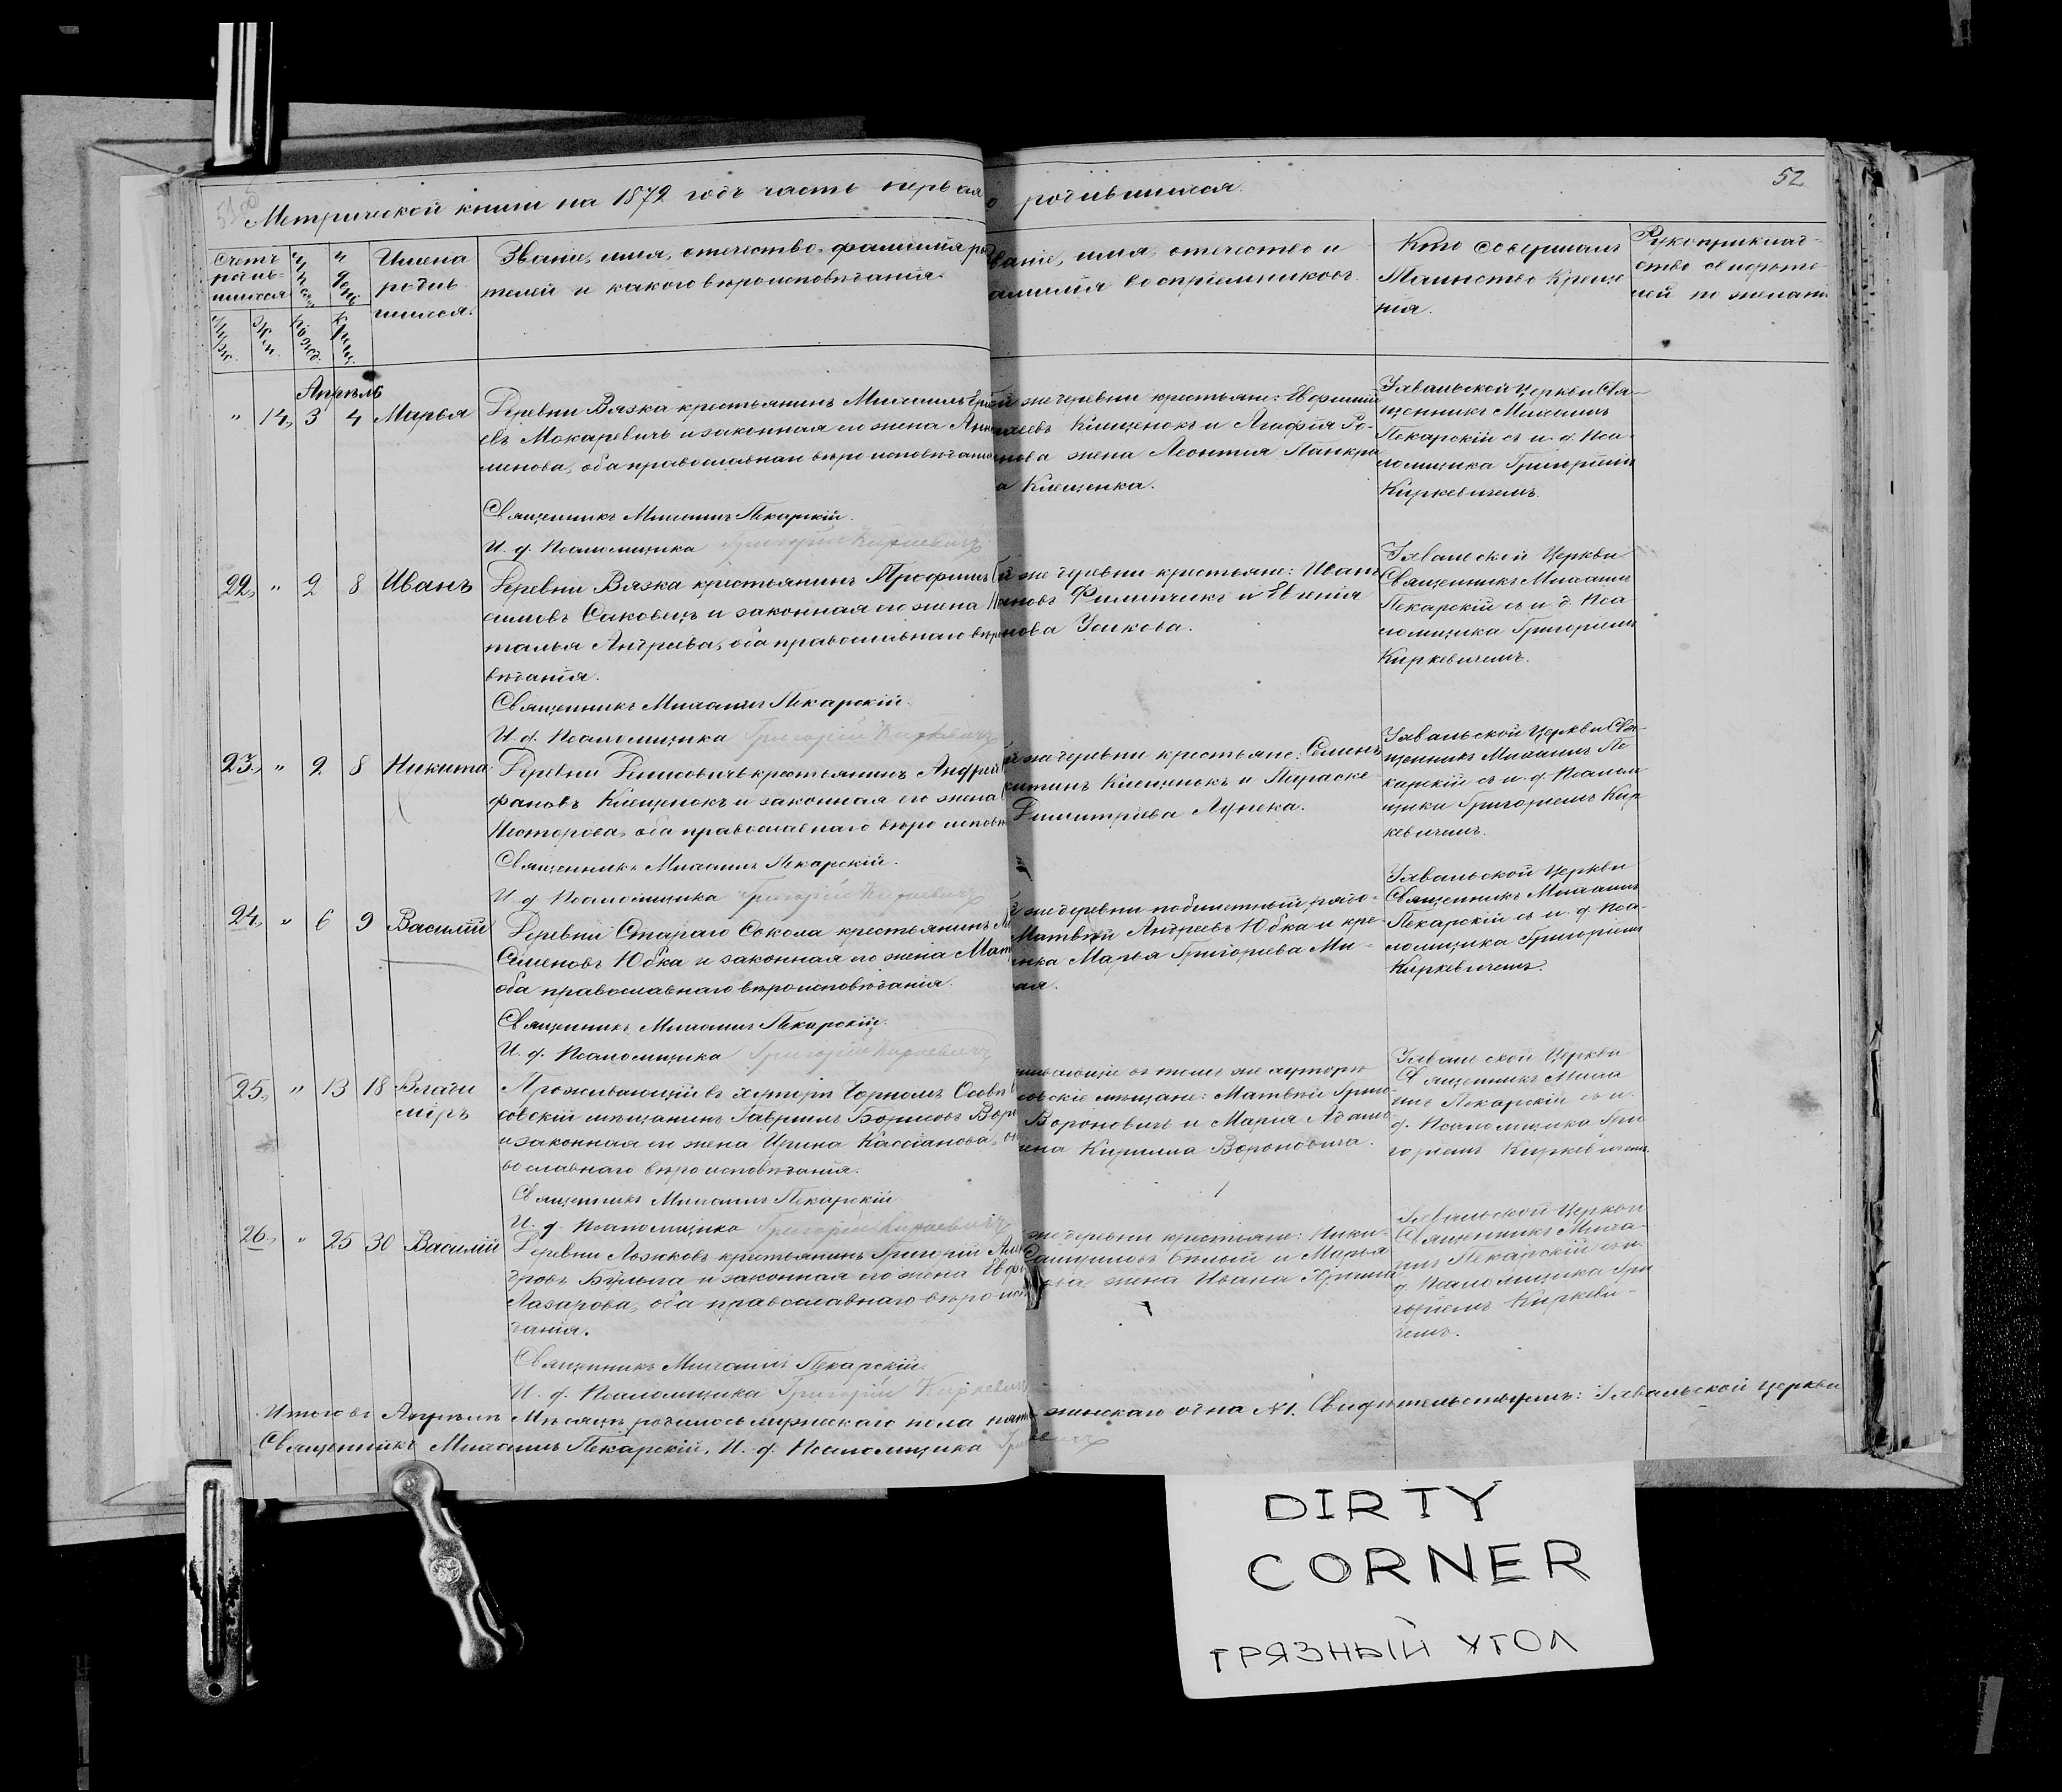 52
Метрической книги на 1872 годъ часть первая о родившихся.
Счетъ родив-
шихся
Имена
родив
шихся.
Званіе, имя, отечество, фамилія ро
телей и какого вѣроисповѣданія.
ваніе, имя, отечество и
амилія воспріемниковъ.
Кто совершалъ
Таинство Креще
нія.
Рукоприклад-
ство свидѣте-
лей по желані
Апрѣль
" 14, 3 4 Марья
Деревни Вязка крестьянинъ Михаилъ
евъ Макаревичъ и законная его жена Анна
менова, оба православнаго вѣроисповѣданія
Священникъ Михаилъ Пекарскій.
И. д. Псаломщика Григорій Киркевичъ
й же деревни крестьяне:
Клещенокъ и Агафія Ро-
нова жена Леонтія Панкра
а Клещенка.
Улвальской Церкви Свя-
щенникъ Михаилъ
Пекарскій съ и. д. Пса-
ломщика Григоріемъ
Киркевичемъ.
22, " 2 8 Иванъ
Деревни Вязка крестьянинъ Трофимъ
симовъ Саковецъ и законная его жена На
талья Андреева, оба православнаго вѣро
вѣданія.
Священникъ Михаилъ Пекарскій.
И. д. Псаломщика Григорій Киркевичъ
й же деревни крестьяне: Иванъ
ановъ Филипчикъ и Евгенія
нова Усикова.
Улвальской Церкви
Священникъ Михаилъ
Пекарскій съ и д. Пса
ломщика Григоріемъ
Киркевичемъ.
23, " 2 8 Никита
Деревни Денисовичъ крестьянинъ Андрей
фановъ Клещенокъ и законная его жена
Несторова, оба православнаго вѣро испов
Священникъ Михаилъ Пекарскій.
И. д. Псаломщика Григорій Киркевичъ
й же деревни крестьяне: Семенъ
китинъ Клещенокъ и Параске-
Димитріева Лупека.
Улвальской Церкви Свя-
щенникъ Михаилъ Пе
карскій съ и. д. Псалом
щика Григоріемъ Кир
кевичемъ.
24, " 6 9 Василій
Деревни Стараго Сокола крестьянинъ
Семеновъ Юбка и законная его жена Мат
оба православнаго вѣроисповѣданія.
Священникъ Михаилъ Пекарскій.
И. д. Псаломщика Григорій Киркевичъ
же деревни побилетный рядо-
Матвѣй Андреевъ Юбка и кре-
нка Марья Григорьева Ми-
ая.
Улвальской Церкви
Священникъ Михаилъ
Пекарскій съ и. д. Пса-
ломщика Григоріемъ
Киркевичемъ.
25, " 13 18 Влади
міръ
Проживающій въ хуторѣ Чорномъ Осовѣ
совскій мѣщанинъ Гавріилъ Борисовъ Вор
и законная его жена Ирина Кассіанова, о
вославнаго вѣроисповѣданія.
Священникъ Михаилъ Пекарскій
И. д. Псаломщика Григорій Киркевичъ
живающіе въ томъ же хуторѣ
совскіе мѣщане: Матвѣй Григо-
Вороновичъ и Марія Адамо-
жена Кирилла Вороновича.
Улвальской Церкви
Священникъ Миха
илъ Пекарскій съ и.
д. Псаломщика Гри
горіемъ Киркевичемъ.
26, " 25 30 Василій
Деревни Ложковъ крестьянинъ Григорій
дровъ Булыга и законная его жена Евф
Лазарова, оба православнаго вѣро исп
данія.
Священникъ Михаилъ Пекарскій.
И. д. Псаломщика Григорій Киркевичъ
же деревни крестьяне: Ники-
Самуиловъ Бѣлый и Марья
ова жена Ивана
Улвальской Церкви
Священникъ Миха-
илъ Пекарскій съ и.
д. Псаломщика Гри
горіемъ Киркеви-
чемъ.
Итого въ Апрѣлѣ Мѣсяцѣ родилось мужескаго пола пять женскаго одна № 1. Свидѣтельствуемъ: Улвальской церкви
Священникъ Михаилъ Пекарскій, И. д. Псаломщика
DIRTY
CORNER
ГРЯЗНЫЙ УГОЛ